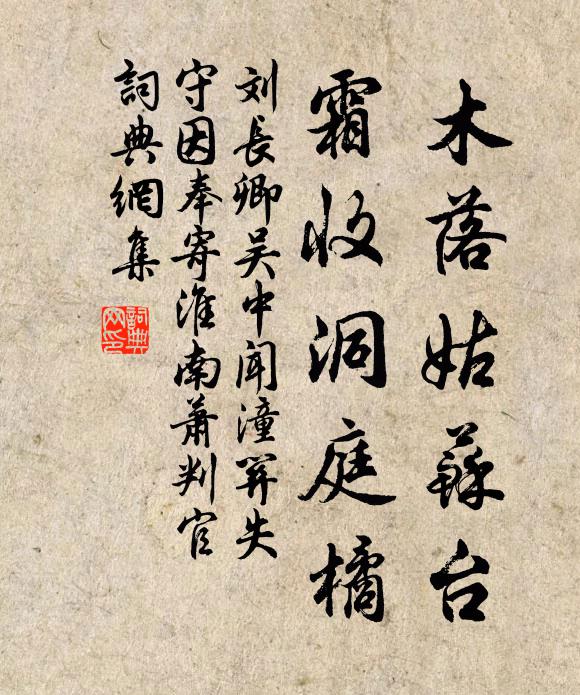 木落姑蘇台
霜收洞庭橘
刘長卿吴中聞潼関失
守因奉寄淮南蕭判官
詞典網集
詞典
网印